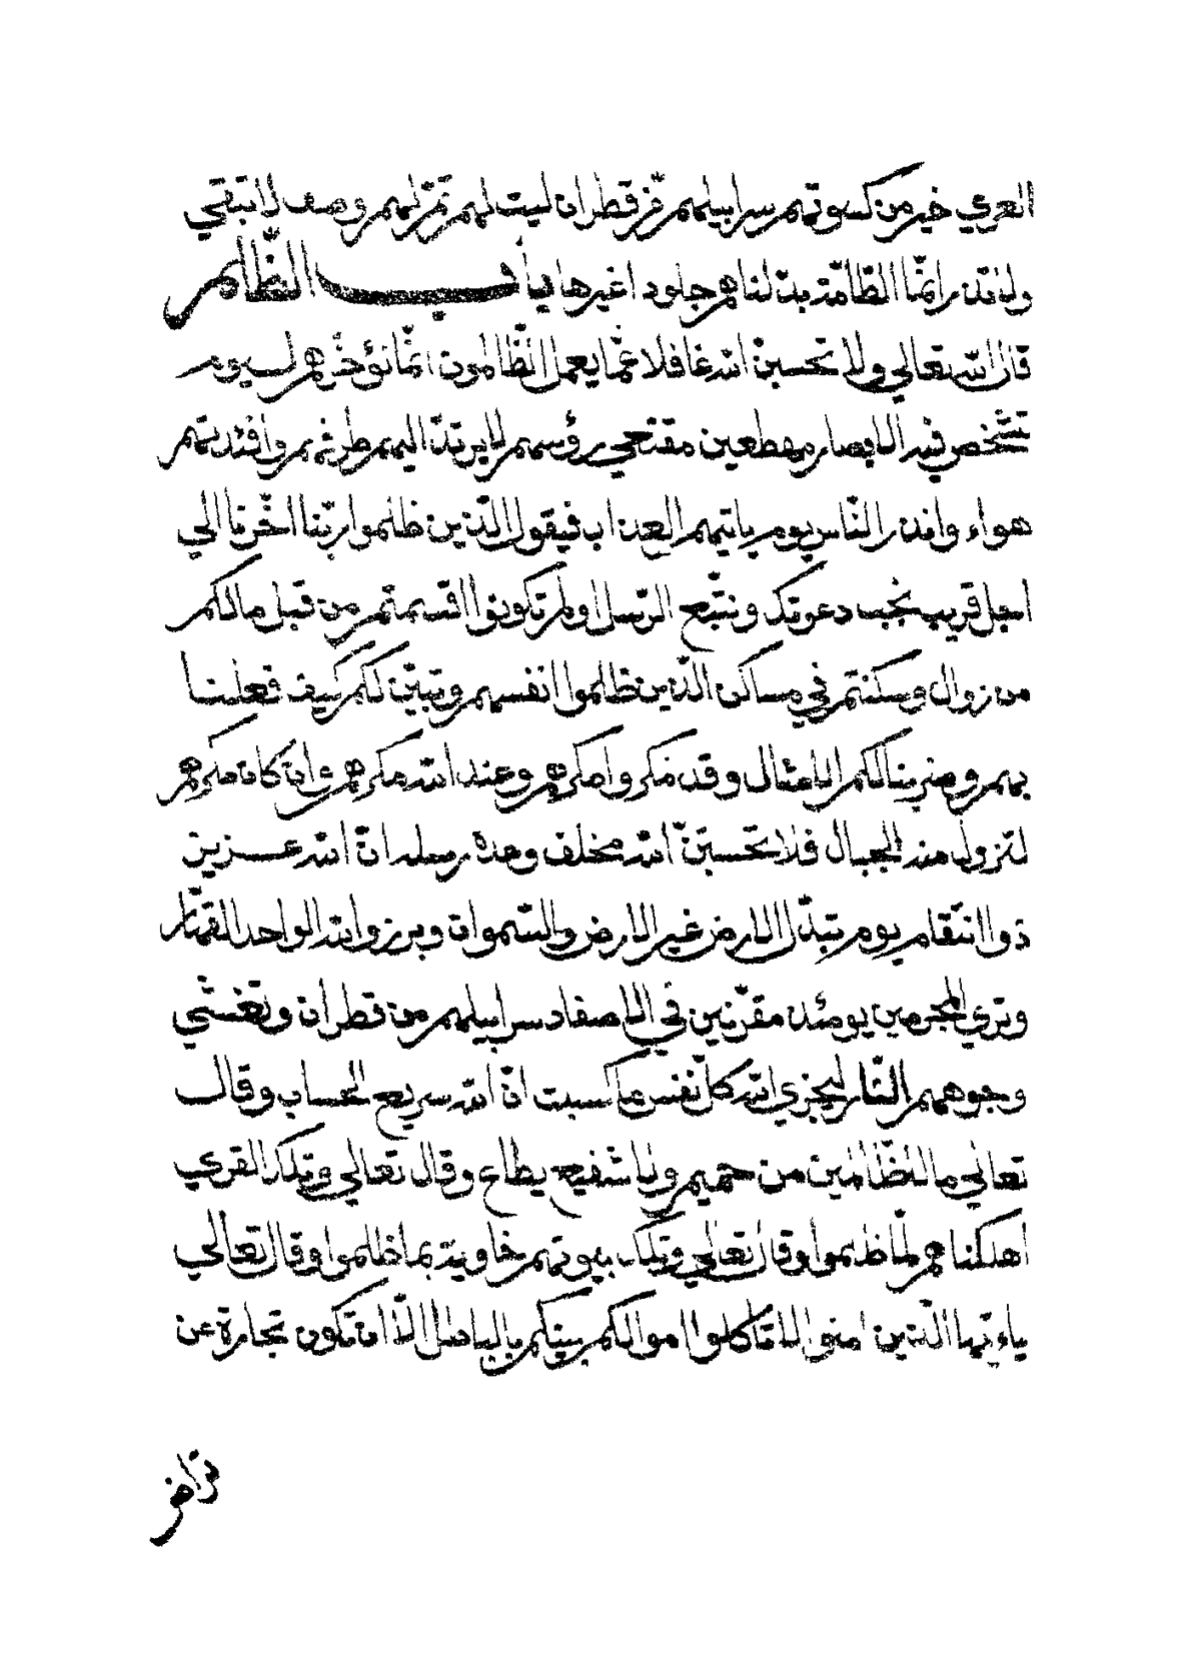 العري خير من كسوتهم سرابيلهم من قطران ليت لهم ثم لهم وصف لا تبقي
ولا تذر انما الظلمة بدلناهم جلودا غيرها باب الظالم
قال الله تعالي ولا تحسبن الله غافلا عما يعمل الظالمون انما نؤخرهم ليوم
تشخص فيه الابصار مهطعين مقنعي رؤسهم لا يرتد اليهم طرفهم وافئدتهم
هواء وانذر الناس يوم ياتيهم العذاب فيقول الذين ظلموا ربنا اخرنا الي
اجل قريب نجب دعوتك ونتبع الرسل اولم تكونوا اقسمتم من قبل مالكم
من زوال وسكنتم في مساكن الذين ظلموا انفسهم وتبين لكم كيف فعلنا
بهم وضربنا لكم الامثال وقد مكروا مكرهم وعند الله مكرهم وان كان مكرهم
لتزول منه الجبال فلا تحسبن الله مخلف وعده رسله ان الله عزيز
ذو انتقام يوم تبدل الارض غير الارض والسموات وبرزوا لله الواحد القهار
وتري المجرمين يومئذ مقرنين في الاصفاد سرابيلهم من قطران وتغشي
وجوههم النار ليجزي الله كل نفس ما كسبت ان الله سريع الحساب وقال
تعالي ما للظالمين من حميم ولا شفيع يطاع وقال تعالي وتلك القري
اهلكناهم لما ظلموا وقال تعالي وتلك بيوتهم خاوية بما ظلموا وقال تعالي
ياءيها الذين امنوا لا تاكلوا اموالكم بينكم بالباطل الا ان تكون تجارة عن
تراض